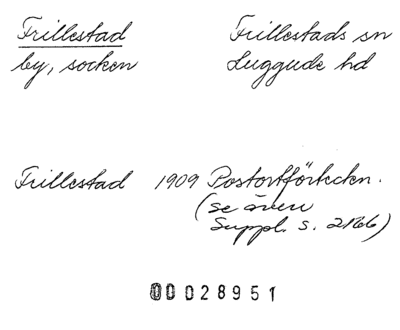 Frillestad
by, socken
Frillestads sn
Luggude hd
Frillestad 1909 Postortförteckn.
(se även
Suppl. s. 2166)
00028951